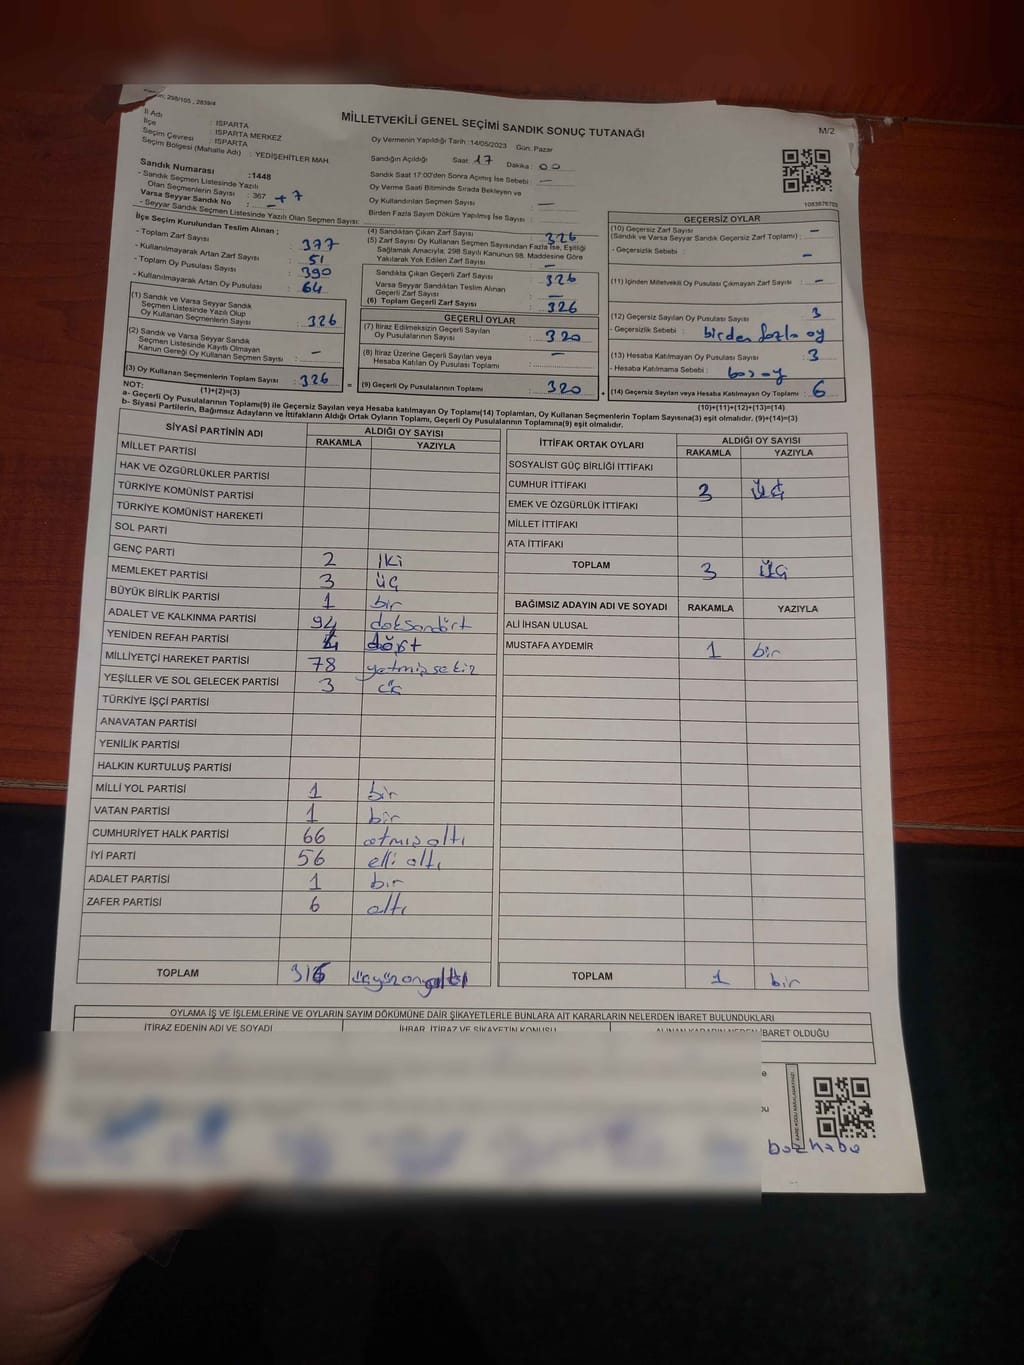 298/105 , 2839/4
MİLLETVEKİLİ GENEL SEÇİMİ SANDIK SONUÇ TUTANAĞI
M/2
İl Adı : ISPARTA
İlçe : ISPARTA MERKEZ
Seçim Çevresi : ISPARTA
Seçim Bölgesi (Mahalle Adı) : YEDİŞEHİTLER MAH.
Oy Vermenin Yapıldığı Tarih :14/05/2023 Gün: Pazar
Sandığın Açıldığı Saat: 17 Dakika : 00
Sandık Saat 17:00'den Sonra Açmış İse Sebebi : —
Oy Verme Saati Bitiminde Sırada Bekleyen ve
Oy Kullandırılan Seçmen Sayısı : —
Birden Fazla Sayım Döküm Yapılmış İse Sayısı : —
Sandık Numarası :1448
- Sandık Seçmen Listesinde Yazılı
Olan Seçmenlerin Sayısı : 367 + 7
Varsa Seyyar Sandık No : —
- Seyyar Sandık Seçmen Listesinde Yazılı Olan Seçmen Sayısı:
İlçe Seçim Kurulundan Teslim Alınan ;
- Toplam Zarf Sayısı : 377
- Kullanılmayarak Artan Zarf Sayısı : 51
- Toplam Oy Pusulası Sayısı : 390
- Kullanılmayarak Artan Oy Pusulası : 64
(1) Sandık ve Varsa Seyyar Sandık
Seçmen Listesinde Yazılı Olup
Oy Kullanan Seçmenlerin Sayısı : 326
(2) Sandık ve Varsa Seyyar Sandık
Seçmen Listesinde Kayıtlı Olmayan
Kanun Gereği Oy Kullanan Seçmen Sayısı : —
(3) Oy Kullanan Seçmenlerin Toplam Sayısı : 326
(1)+(2)=(3)
(4) Sandıktan Çıkan Zarf Sayısı : 326
(5) Zarf Sayısı Oy Kullanan Seçmen Sayısından Fazla İse, Eşitliği
Sağlamak Amacıyla, 298 Sayılı Kanunun 98. Maddesine Göre
Yakılarak Yok Edilen Zarf Sayısı : —
Sandıkta Çıkan Geçerli Zarf Sayısı : 326
Varsa Seyyar Sandıktan Teslim Alınan
Geçerli Zarf Sayısı : —
(6) Toplam Geçerli Zarf Sayısı : 326
GEÇERLİ OYLAR
(7) İtiraz Edilmeksizin Geçerli Sayılan
Oy Pusulalarının Sayısı : 320
(8) İtiraz Üzerine Geçerli Sayılan veya
Hesaba Katılan Oy Pusulası Toplamı : —
= (9) Geçerli Oy Pusulalarının Toplamı : 320
1083876703
GEÇERSİZ OYLAR
(10) Geçersiz Zarf Sayısı
(Sandık ve Varsa Seyyar Sandık Geçersiz Zarf Toplamı) : —
- Geçersizlik Sebebi : —
(11) İçinden Milletvekili Oy Pusulası Çıkmayan Zarf Sayısı : —
(12) Geçersiz Sayılan Oy Pusulası Sayısı : 3
- Geçersizlik Sebebi : birden fazla oy
(13) Hesaba Katılmayan Oy Pusulası Sayısı : 3
- Hesaba Katılmama Sebebi : boş oy
+ (14) Geçersiz Sayılan veya Hesaba Katılmayan Oy Toplamı : 6
(10)+(11)+(12)+(13)=(14)
NOT:
a- Geçerli Oy Pusulalarının Toplamı(9) ile Geçersiz Sayılan veya Hesaba katılmayan Oy Toplamı(14) Toplamları, Oy Kullanan Seçmenlerin Toplam Sayısına(3) eşit olmalıdır. (9)+(14)=(3)
b- Siyasi Partilerin, Bağımsız Adayların ve İttifakların Aldığı Ortak Oyların Toplamı, Geçerli Oy Pusulalarının Toplamına(9) eşit olmalıdır.
SİYASİ PARTİNİN ADI ALDIĞI OY SAYISI
RAKAMLA YAZIYLA
MİLLET PARTİSİ
HAK VE ÖZGÜRLÜKLER PARTİSİ
TÜRKİYE KOMÜNİST PARTİSİ
TÜRKİYE KOMÜNİST HAREKETİ
SOL PARTİ
GENÇ PARTİ 2 iki
MEMLEKET PARTİSİ 3 üç
BÜYÜK BİRLİK PARTİSİ 1 bir
ADALET VE KALKINMA PARTİSİ 94 doksandört
YENİDEN REFAH PARTİSİ 4 dört
MİLLİYETÇİ HAREKET PARTİSİ 78 yetmişsekiz
YEŞİLLER VE SOL GELECEK PARTİSİ 3 üç
TÜRKİYE İŞÇİ PARTİSİ
ANAVATAN PARTİSİ
YENİLİK PARTİSİ
HALKIN KURTULUŞ PARTİSİ
MİLLİ YOL PARTİSİ 1 bir
VATAN PARTİSİ 1 bir
CUMHURİYET HALK PARTİSİ 66 atmış altı
İYİ PARTİ 56 elli altı
ADALET PARTİSİ 1 bir
ZAFER PARTİSİ 6 altı
TOPLAM 316 üçyüzonaltı
İTTİFAK ORTAK OYLARI ALDIĞI OY SAYISI
RAKAMLA YAZIYLA
SOSYALİST GÜÇ BİRLİĞİ İTTİFAKI
CUMHUR İTTİFAKI 3 üç
EMEK VE ÖZGÜRLÜK İTTİFAKI
MİLLET İTTİFAKI
ATA İTTİFAKI
TOPLAM 3 üç
BAĞIMSIZ ADAYIN ADI VE SOYADI RAKAMLA YAZIYLA
ALİ İHSAN ULUSAL
MUSTAFA AYDEMİR 1 bir
TOPLAM 1 bir
OYLAMA İŞ VE İŞLEMLERİNE VE OYLARIN SAYIM DÖKÜMÜNE DAİR ŞİKAYETLERLE BUNLARA AİT KARARLARIN NELERDEN İBARET BULUNDUKLARI
İTİRAZ EDENİN ADI VE SOYADI İHBAR, İTİRAZ VE ŞİKAYETİN KONUSU ALINAN KARARIN NEDEN İBARET OLDUĞU